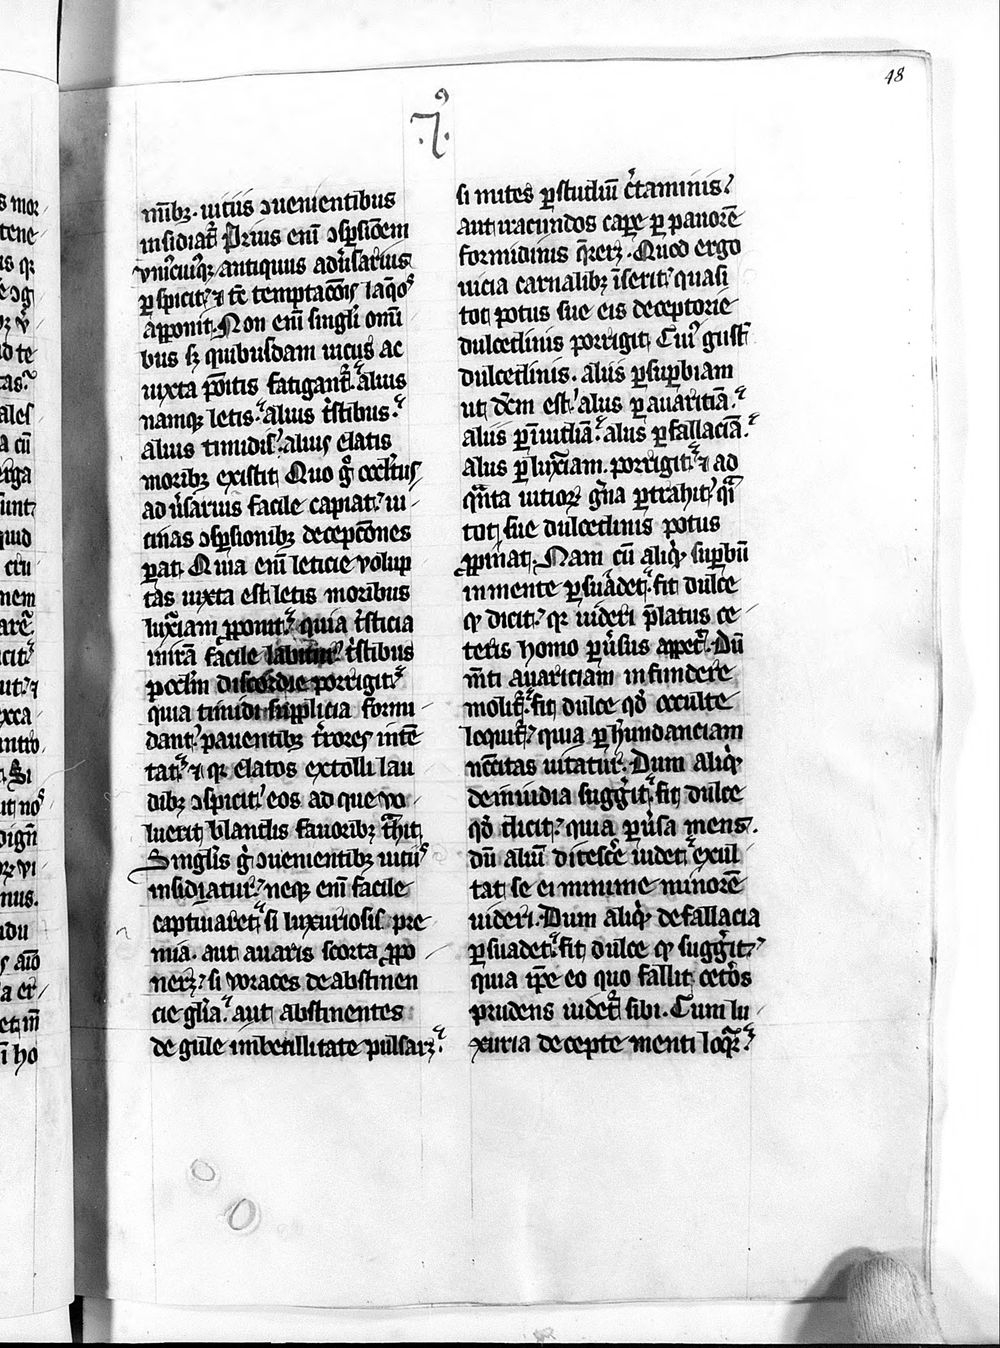 48
.7.
mībꝫ. uitiis ꝯuenientibus
insidiat᷑ Prius enī ꝯsꝑsiōem
vniꝰcuiusqꝫ antiquus aduˀsarius
ꝑspicit; ⁊ tē temptacōnis laq̄os
apponit. Non enī singlˀi omī
bus sꝫ quibusdam uicus ac
iuxta pōitis fatigant᷑. alius
namqꝫ letis. alius tˀstibus.
alius timidis. alius elatis
moribꝫ existit Quo gͦ occltˀus
aduˀsarius facile capiat; ui-
cinas ꝯsꝑsionibꝫ decepcōnes
ꝑat. Quia enī leticie volup
tas iuxta est letis moribus
luxˀiam ꝓponit; quia tˀsticia
in irā facile labitur. tˀstibus
pocl̄m discordie porrigit.
quia timidi supplicia formi-
dant; pauentibꝫ tˀrores intē
tat; ⁊ qꝫ elatos extolli lau
dibꝫ ꝯspicit; eos ad que vo-
luerit blandis fauoribꝫ tˀhit;
Singlˀis gͦ ꝯuenientibꝫ uitiis
insidiatur; neqꝫ enī facile
captiuaret; si luxuriosis pre-
mia. aut auaris scorta ꝓpo-
nerꝫ; si voraces de abstinen
cie glˀia. aut abstinentes
de gule imbecillitate pulsarꝫ.
si mites ꝑ studiū cˀtaminis;
aut iracundos caꝑe ꝑ pauorē
formidinis q̄rerꝫ. Quod ergo
uicia carnalibꝫ īserit; quasi
tot potus sue eis deceptorie
dulcedinis porrigit; Cuiꝰ gust᷑
dulcedinis. aliis ꝑ suꝑbiam
ut dc̄m est; aliis ꝑ auaritiā.
aliis ꝑ īuidiā. aliis ꝑ fallaciā.
aliis ꝑ luxˀiam. porrigit; ⁊ ad
quāta uitiorꝫ gn̄a ꝑtrahit; qˀi
tot sue dulcedinis potus
ꝓpinat. Nam cū aliqͥd suꝑbū
in mente ꝑsuadet; fit dulce
qd dicit; qꝫ uideri p̄latus ce-
teris homo ꝑuˀsus appet᷑. Dū
mˀti auariciam infundere
molit᷑; fit dulce qd̄ occulte
loquit᷑; quia ꝑ habundanciam
nec̄itas uitatur. Dum aliqͥd
de inuidia suggˀit; fit dulce
qd̄ dicit; quia ꝑuˀsa mens.
dū aliū ditescˀe uidet; exul-
tat se ei minime minorē
uideri. Dum aliqͥd de fallacia
ꝑsuadet; fit dulce qd suggˀit;
quia ip̄e eo quo fallit cetˀos
prudens uidet᷑ sibi. Cum lu-
xuria decepte menti loqͣr;